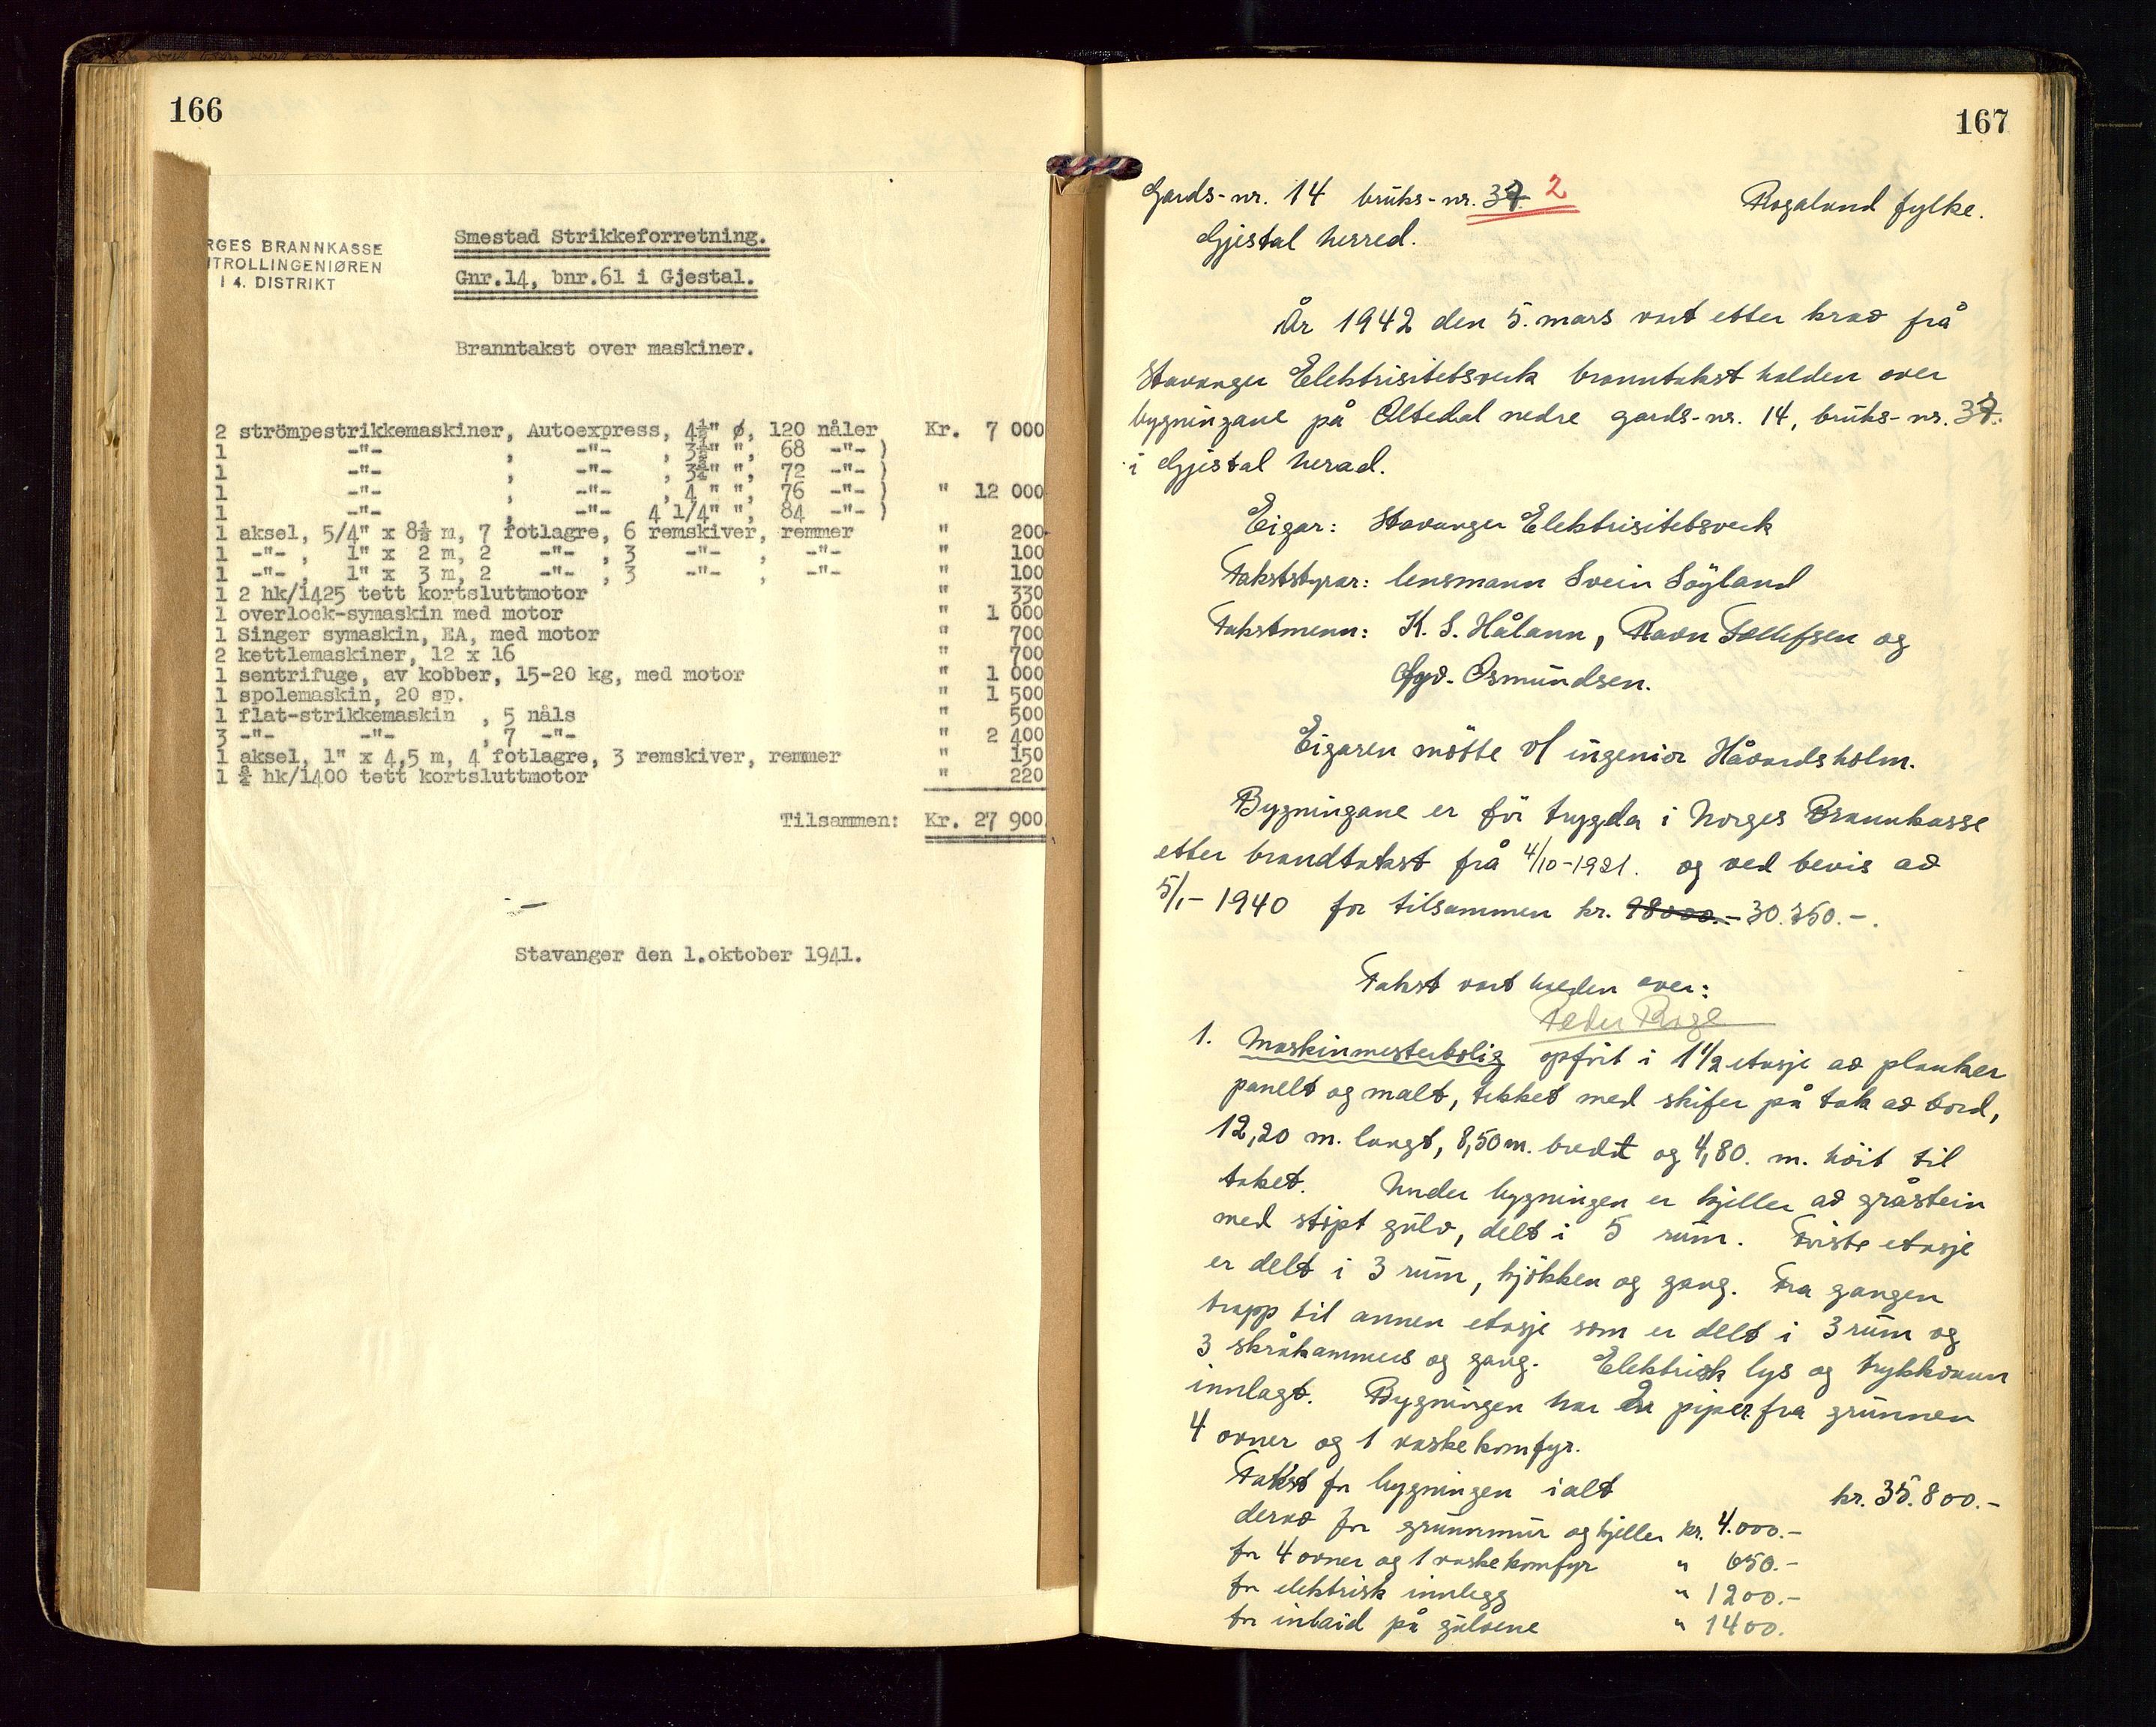 166
RGES BRANNKASSE
NTROLLINGENIØREN
I 4. DISTRIKT
Smestad Strikkeforretning.
Gnr.14, bnr.61 i Gjestal.
Branntakst over maskiner.
2 strömpestrikkemaskiner, Autoexpress, 4½" ø, 120 nåler Kr. 7 000
1 -"- , -"- , 3½" ", 68 -"- )
1 -"- , -"- , 3¾" ", 72 -"- )
1 -"- , -"- , 4 " ", 76 -"- ) " 12 000
1 -"- , -"- 4 1/4" ", 84 -"- )
1 aksel, 5/4" x 8½ m, 7 fotlagre, 6 remskiver, remmer " 200
1 -"- , 1" x 2 m, 2 -"- , 3 -"- , -"- " 100
1 -"- , 1" x 3 m, 2 -"- , 3 -"- , -"- " 100
1 2 hk/1425 tett kortsluttmotor " 330
1 overlock-symaskin med motor " 1 000
1 Singer symaskin, EA, med motor " 700
2 kettlemaskiner, 12 x 16 " 700
1 sentrifuge, av kobber, 15-20 kg, med motor " 1 000
1 spolemaskin, 20 sp. " 1 500
1 flat-strikkemaskin , 5 nåls " 500
3 -"- -"- , 7 -"- " 2 400
1 aksel, 1" x 4,5 m, 4 fotlagre, 3 remskiver, remmer " 150
1 ¾ hk/1400 tett kortsluttmotor " 220
Tilsammen: Kr. 27 900.
Stavanger den 1.oktober 1941.
167
Gards-nr. 14 bruks-nr. 37 2 Rogaland fylke.
Gjestal herred.
År 1942 den 5. mars vart etter krav frå
Stavanger Elektrisitetsverk branntakst halden over
bygningane på Oltedal nedre gards-nr. 14, bruks-nr. 37.
i Gjestal herad.
Eigar: Stavanger Elektrisitetsverk
Takststyrar: lensmann Svein Söyland
Takstmenn: K. S. Hålann, Ravn Tollefsen og
Osmundsen.
Eigaren mötte v/ ingeniör Håvardsholm.
Bygningane er för trygda i Norges Brannkasse
etter brandtakst frå 4/10-1921. og ved bevis av
5/1-1940 for tilsammen kr. 98000.- 30.350.-.
Takst vart halden over:
Peder Rage
1. Maskinmesterbolig opfört i 1 1/2 etasje av planker
panelt og malt, tekket med skifer på tak av bord,
12,20 m. langt, 8,50 m. bredt og 4,80. m. höit til
taket. Under bygningen er kjeller av gråstein
med stöpt gulv, delt i 5 rum. Förste etasje
er delt i 3 rum, kjökken og gang. Fra gangen
trapp til annen etasje som er delt i 3 rum og
3 skråkammers og gang. Elektrisk lys og trykkvann
innlagt. Bygningen har 2 piper fra grunnen
4 ovner og 1 vaskekomfyr.
Takst for bygningen ialt kr. 35.800.-
derav for grunnmur og kjeller kr. 4.000.-
for 4 ovner og 1 vaskekomfyr " 650.-
for elektrisk innlegg " 1200.-
for inlaid på gulvene " 1400.